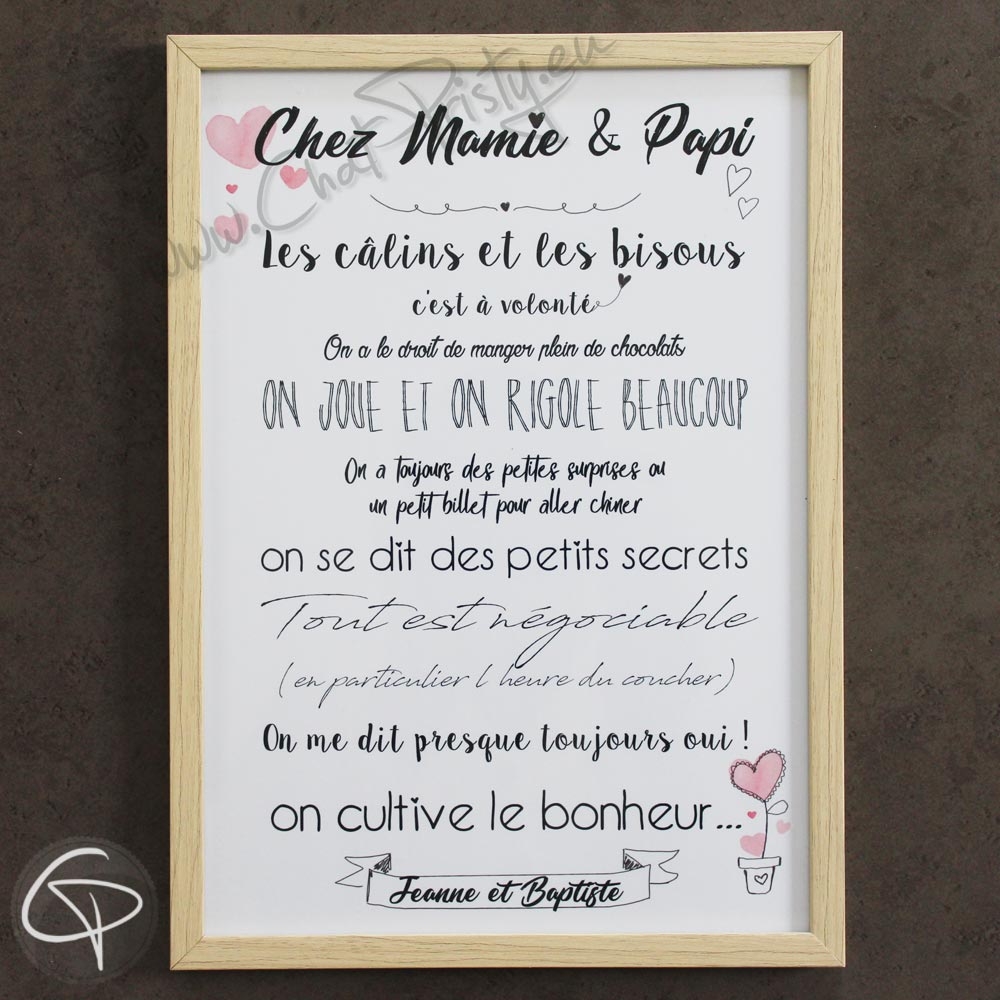 Chez Mamie & Papi
Les câlins et les bisous
c'est à volonté
On a le droit de manger plein de chocolats
ON JOUE ET ON RIGOLE BEAUCOUP
On a toujours des petites surprises ou
un petit billet pour aller chiner
on se dit des petits secrets
Tout est négociable
(en particulier l heure du coucher)
On me dit presque toujours oui !
on cultive le bonheur...
Jeanne et Baptiste
www.ChatPristy.eu
CP